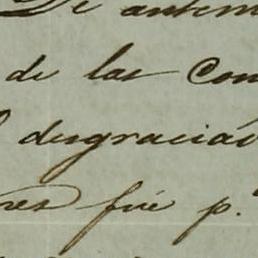 De antem
de las Con
desgraciad
res fué p.